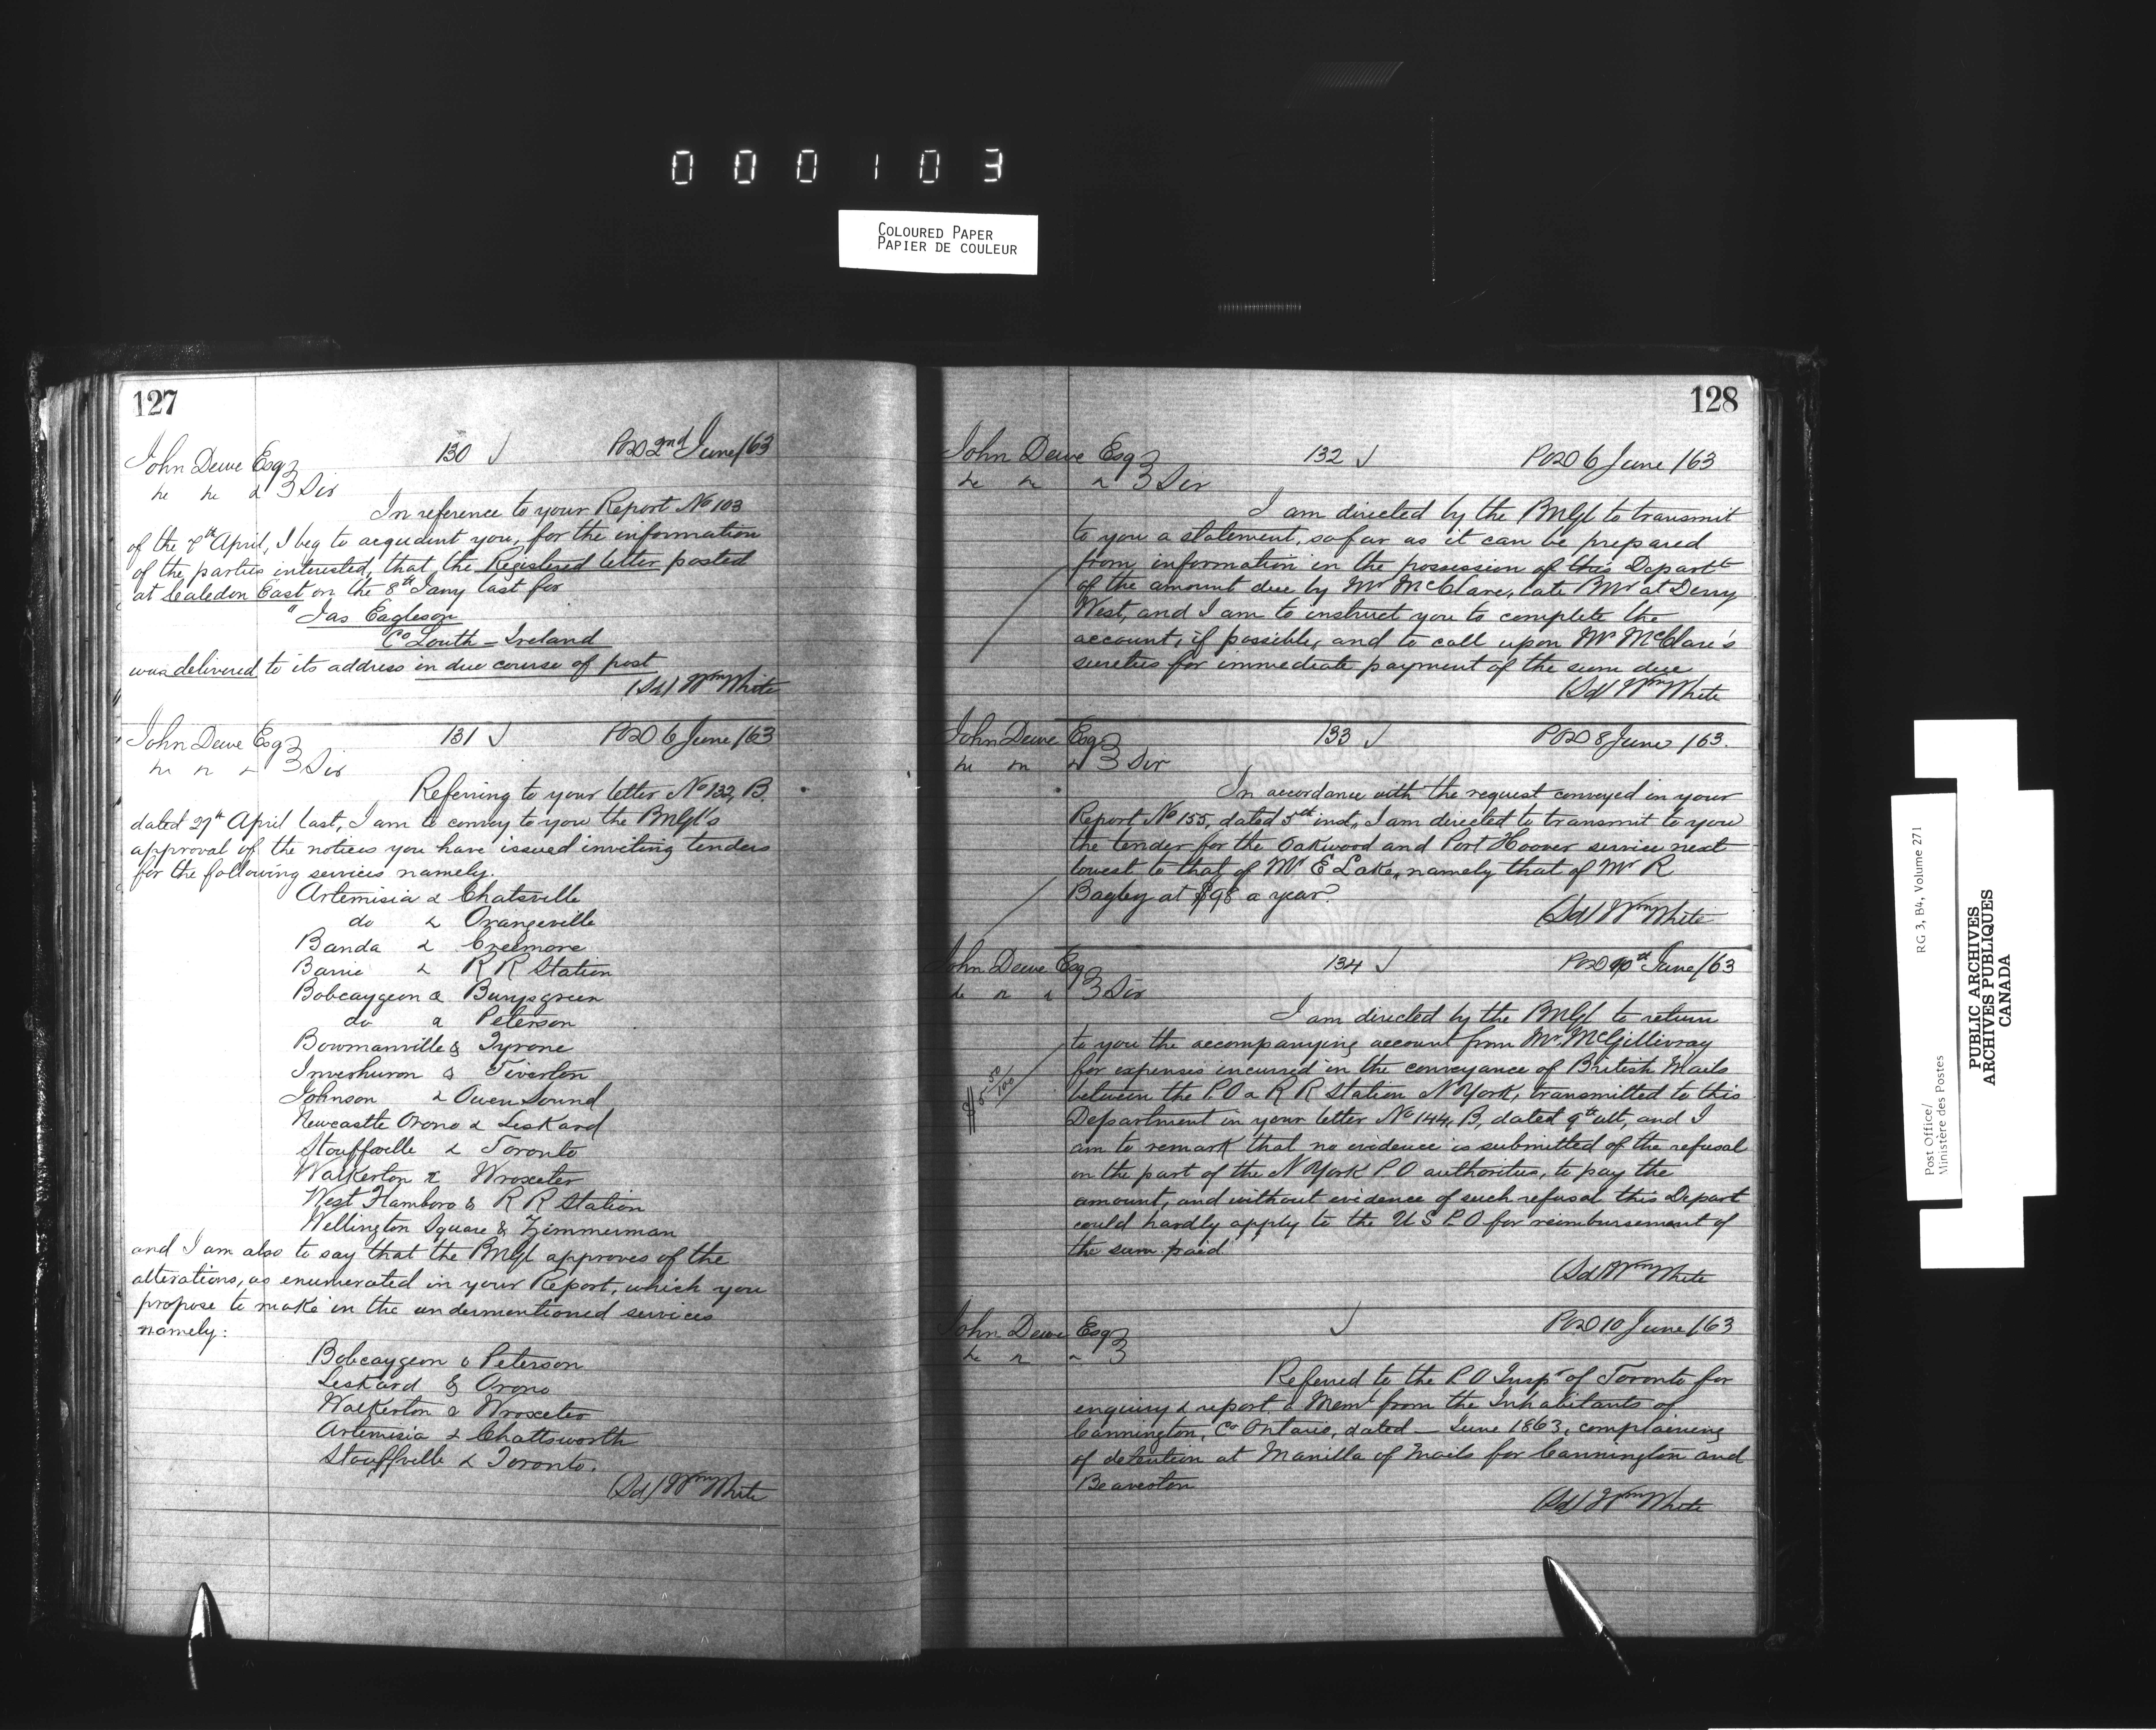 000103
COLOURED PAPER
PAPIER DE COULEUR
127
John Dewe Esq 130 POD 2nd June/63
Sir
In reference to your Report No 103
of the 7th April, I beg to acquaint you, for the information
of the parties interested, that the Registered letter posted
at Caledon East on the 8th Jany last for
"Jas Eagleson
Co Louth - Ireland
was delivered to its address in due course of post
(Sd) Wm White
John Dewe Esq 131 POD 6 June/63
Sir
Referring to your letter No 132, B.
dated 27th April last, I am to convey to you the PMGl's
approval of the notices you have issued inviting tenders
for the following services namely.
Artemisia & Chatsville
do & Orangeville
Banda & Creemore
Barrie & R R Station
Bobcaygeon & Burysgreen
do & Peterson
Bowmanville & Tyrone
Inverhuron & Tiverton
Johnson & Owen Sound
Newcastle Orono & Leskard
Stouffville & Toronto
Walkerton & Wroxeter
West Flamboro & R R Station
Wellington Square & Zimmerman
and I am also to say that the PMGl approves of the
alterations, as enumerated in your Report, which you
propose to make in the undermentioned services
namely:
Bobcaygeon & Peterson
Leskard & Orono
Walkerton & Wroxeter
Artemisia & Chattsworth
Stouffville & Toronto.
(Sd) Wm White
128
John Dewe Esq 132 POD 6 June/63
Sir
I am directed by the PMGl to transmit
to you a statement, so far as it can be prepared
from information in the possession of this Departt
of the amount due by Mr McClare, late PMr at Derry
West, and I am to instruct you to complete the
account, if possible, and to call upon Mr McClare's
sureties for immediate payment of the sum due
(Sd) Wm White
John Dewe Esq 133 POD 8 June/63.
Sir
In accordance with the request conveyed in your
Report No 155, dated 5th inst, I am directed to transmit to you
the tender for the Oakwood and Port Hoover service next
lowest to that of Mr E Lake, namely that of Mr R
Bagley at $98 a year.
(Sd) Wm White
John Dewe Esq 134 POD 10th June/63
Sir
I am directed by the PMGl to return
to you the accompanying account from Mr McGillivray
for expenses incurred in the conveyance of British Mails
between the P.O & R R Station N York, transmitted to this
Department in your letter No 144, B, dated 9th ult, and I
am to remark that no evidence is submitted of the refusal
on the part of the N York P O authorities, to pay the
amount, and without evidence of such refusal this Depart
could hardly apply to the U S P.O for reimbursement of
the sum paid
$5 50/100
(Sd) Wm White
John Dewe Esq POD 10 June/63
Referred to the P O Inspr of Toronto for
enquiry & report a Meml from the Inhabitants of
Cannington, Co Ontario, dated — June 1863, complaining
of detention at Manilla of Mails for Cannington and
Beaverton
(Sd) Wm White
Post Office/
Ministère des Postes
RG 3, B4, Volume 271
PUBLIC ARCHIVES
ARCHIVES PUBLIQUES
CANADA